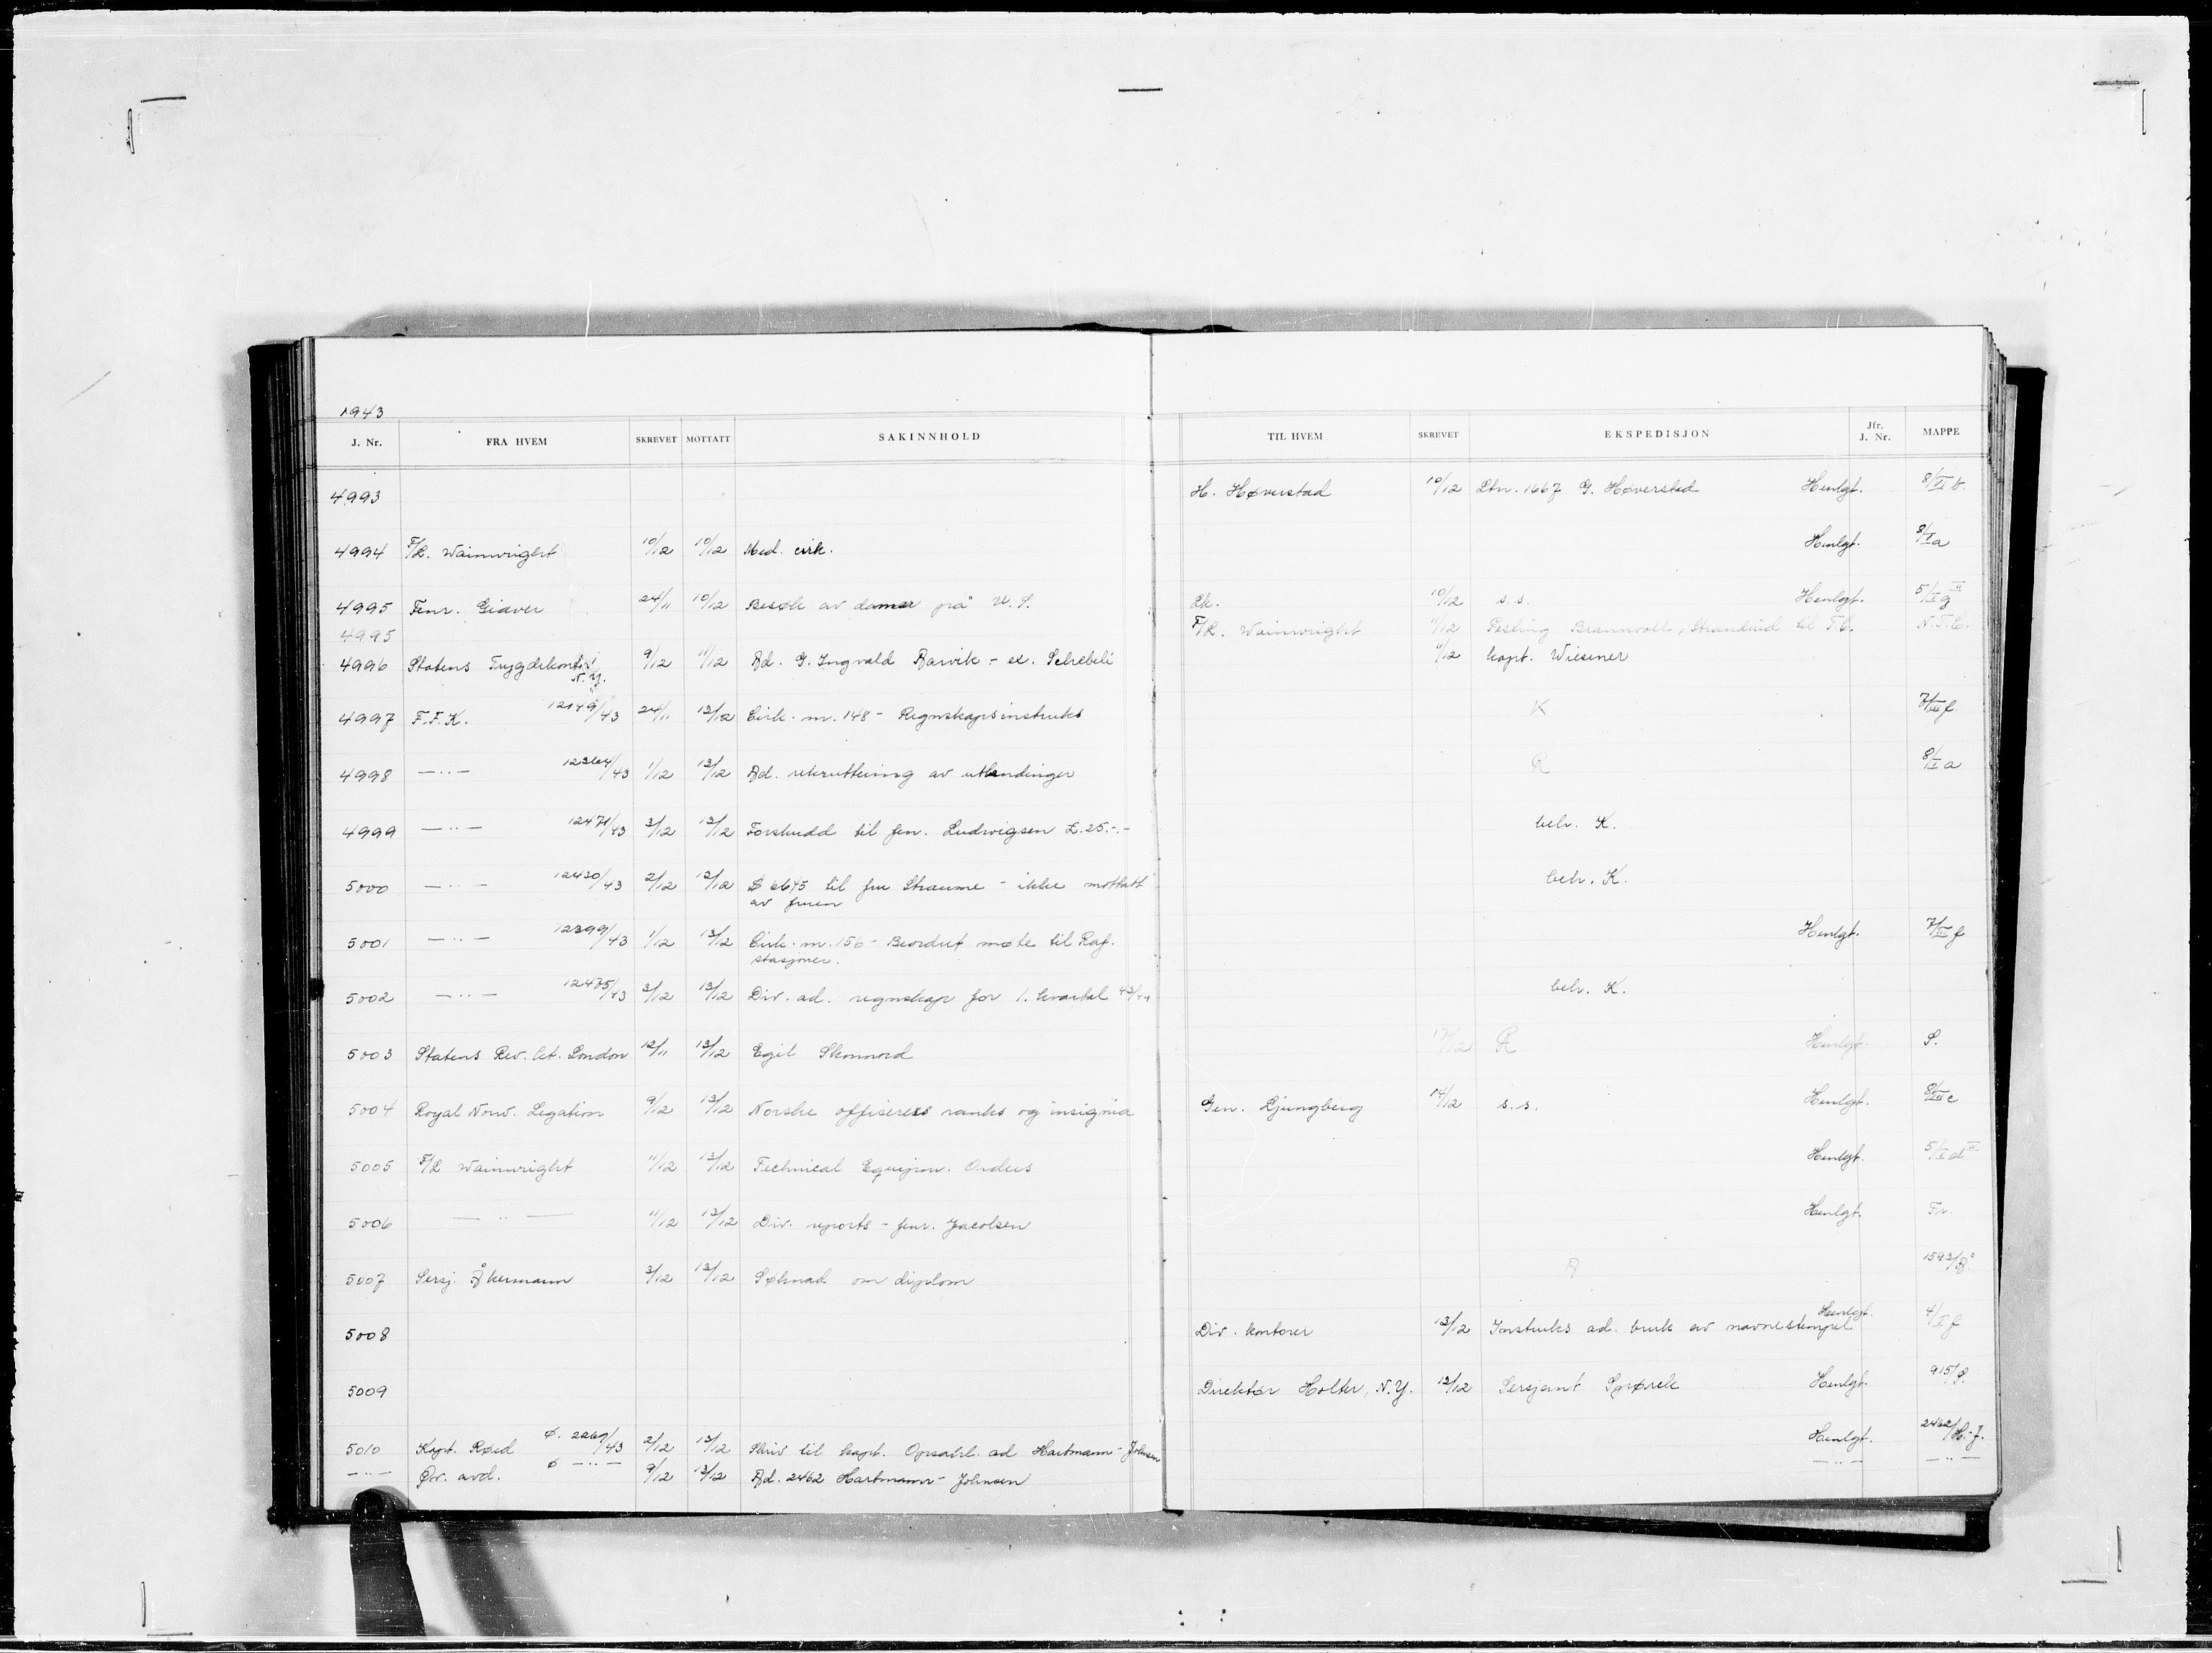 1943
J. Nr. FRA HVEM SKREVET MOTTATT SAKINNHOLD TIL HVEM SKREVET EKSPEDISJON Jfr. J. Nr. MAPPE
4993 H. Høverstad 10/12 Ltn. 1667 G. Høverstad Henlgt. 8/VI b.
4994 F/L. Wainwright 10/12 10/12 Med. cirk. Henlgt. 8/I a
4995 Fenr. Giæver 24/11 10/12 Besøk av damer på U.S. Lk. 10/12 s.s. Henlgt. 5/I g II
4995 F/L. Wainwright 11/12 Testing Brannvoll, Strandlid til T.C. N.T.C.
4996 Statens Trygdekontor N.Y. 9/12 11/12 Ad. G. Ingvald Aarvik - ex. Schebeli 11/12 kapt. Wiesener
4997 F.F.K. 12149/43 24/11 13/12 Cirk. nr. 148 - Regnskapsinstruks K 7/III f.
4998 —..— 12364/43 1/12 13/12 Ad. rekruttering av utlendinger R 8/I a
4999 —..— 12471/43 3/12 13/12 Forskudd til fen. Ludvigsen £.25.-.- beh. K.
5000 —..— 12430/43 2/12 13/12 $ 6645 til fru Straume - ikke mottatt beh. K.
av fruen
5001 —..— 12399/43 1/12 13/12 Cirk. nr. 156 - Beordret møte til Raf. Henlgt. 7/III f
stasjoner.
5002 —..— 12485/43 3/12 13/12 Div. ad. regnskap for 1. kvartal 43/44 beh. K.
5003 Statens Rev. London 12/11 13/12 Egil Skonnord 17/12 R Henlgt. S.
5004 Royal Norw. Legation 9/12 13/12 Norske offiserers ranks og insignia Gen. Ljungberg 14/12 s.s. Henlgt. 8/III c
5005 F/L Wainwright 11/12 13/12 Technical Equipm. Orders Henlgt. 5/I d II
5006 — .. — 11/12 13/12 Div. reports - fenr. Jacobsen Henlgt. Fr.
5007 Sersj. Åkermann 3/12 13/12 Søknad om diplom A 1593/Å.
5008 Div. kontorer 13/12 Instruks ad. bruk av navnestempel Henlgt. 4/I f
5009 Direktør Holter, N.Y. 13/12 Sersjant Sprørck Henlgt. 915/S.
5010 Kapt. Røed Ø. 2269/43 2/12 13/12 Skriv til kapt. Opsahl. ad Hartmann-Johnsen Henlgt. 2462/H.-J.
—..— Øv. avd. Ø —..— 9/12 13/12 Ad. 2462 Hartmann-Johnsen —..— —..—